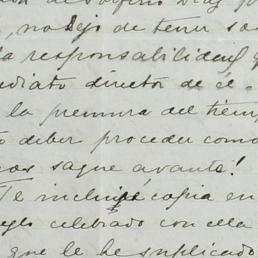 no dejo de tener
la responsabilidad
ediato director de él.
la premura del tiem
o deber proceder como
nos saque avante!
Te incluyo copia en
eglo celebrado con ella
que le he suplicado